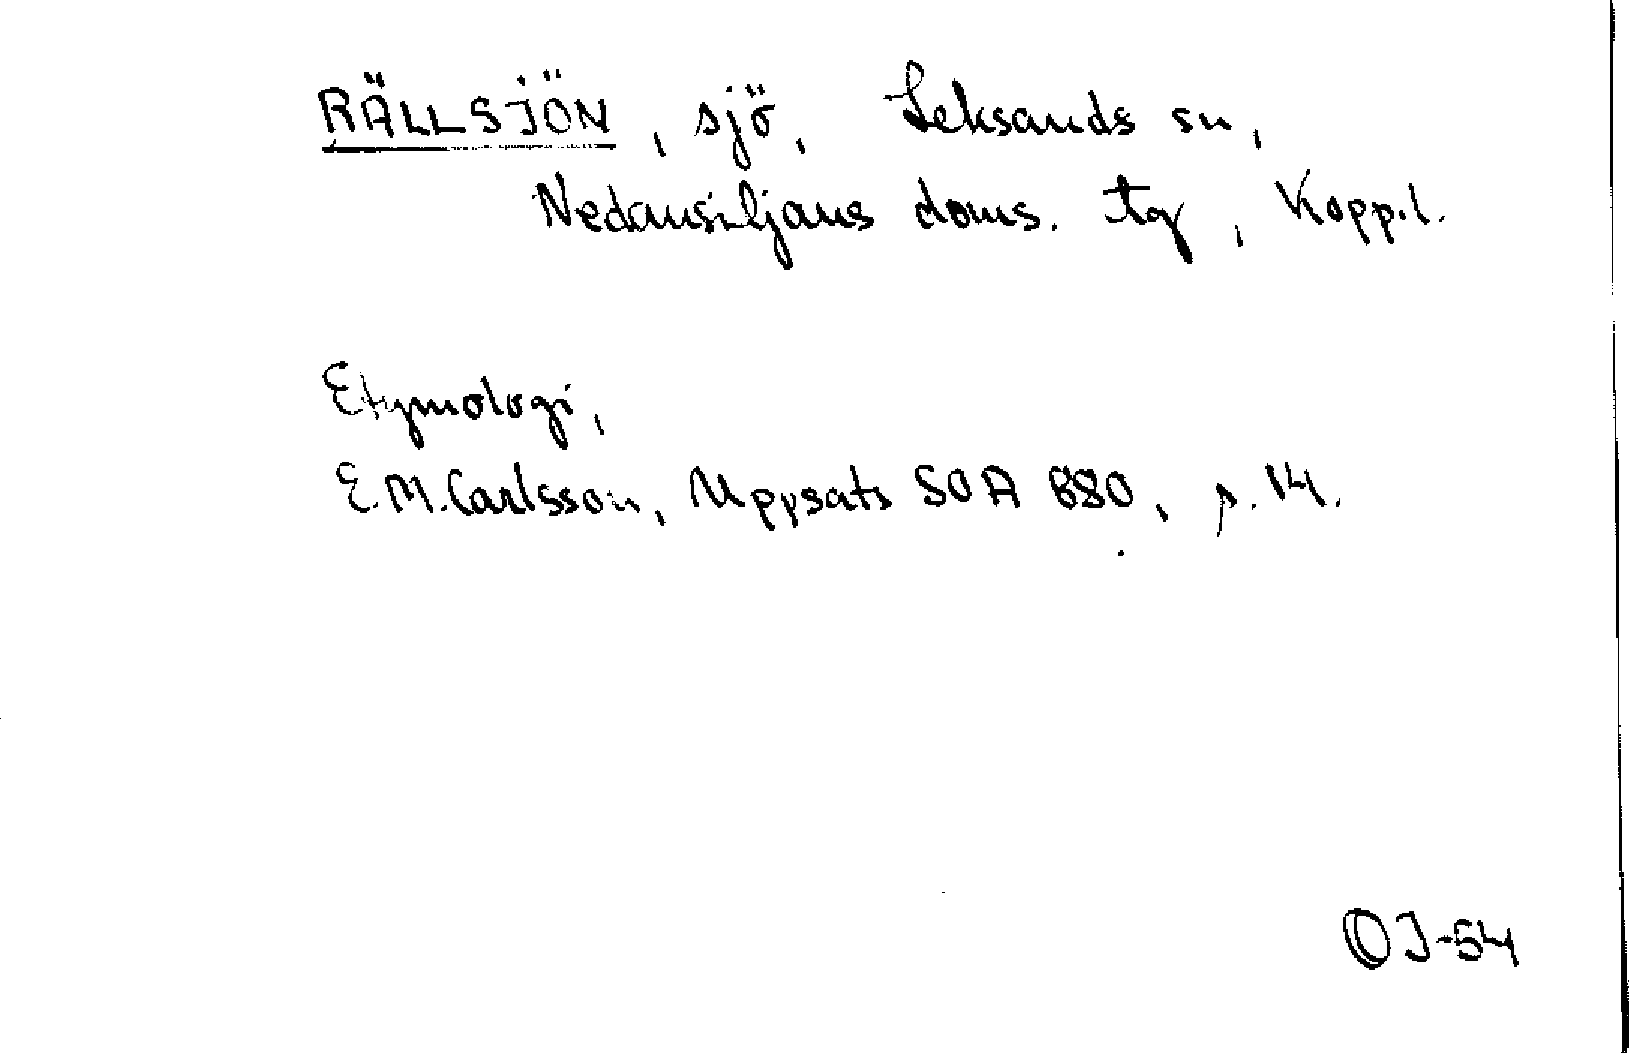 RÄLLSJÖN, sjö, Leksands sn,
Nedansiljans doms. tg, Kopp.l.
Etymologi,
E.M. Carlsson, Uppsats SOA 680, s. 14.
OJ-54